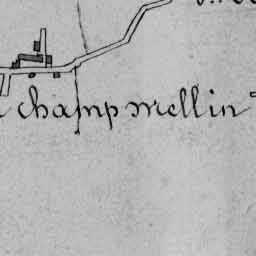 champ mellin